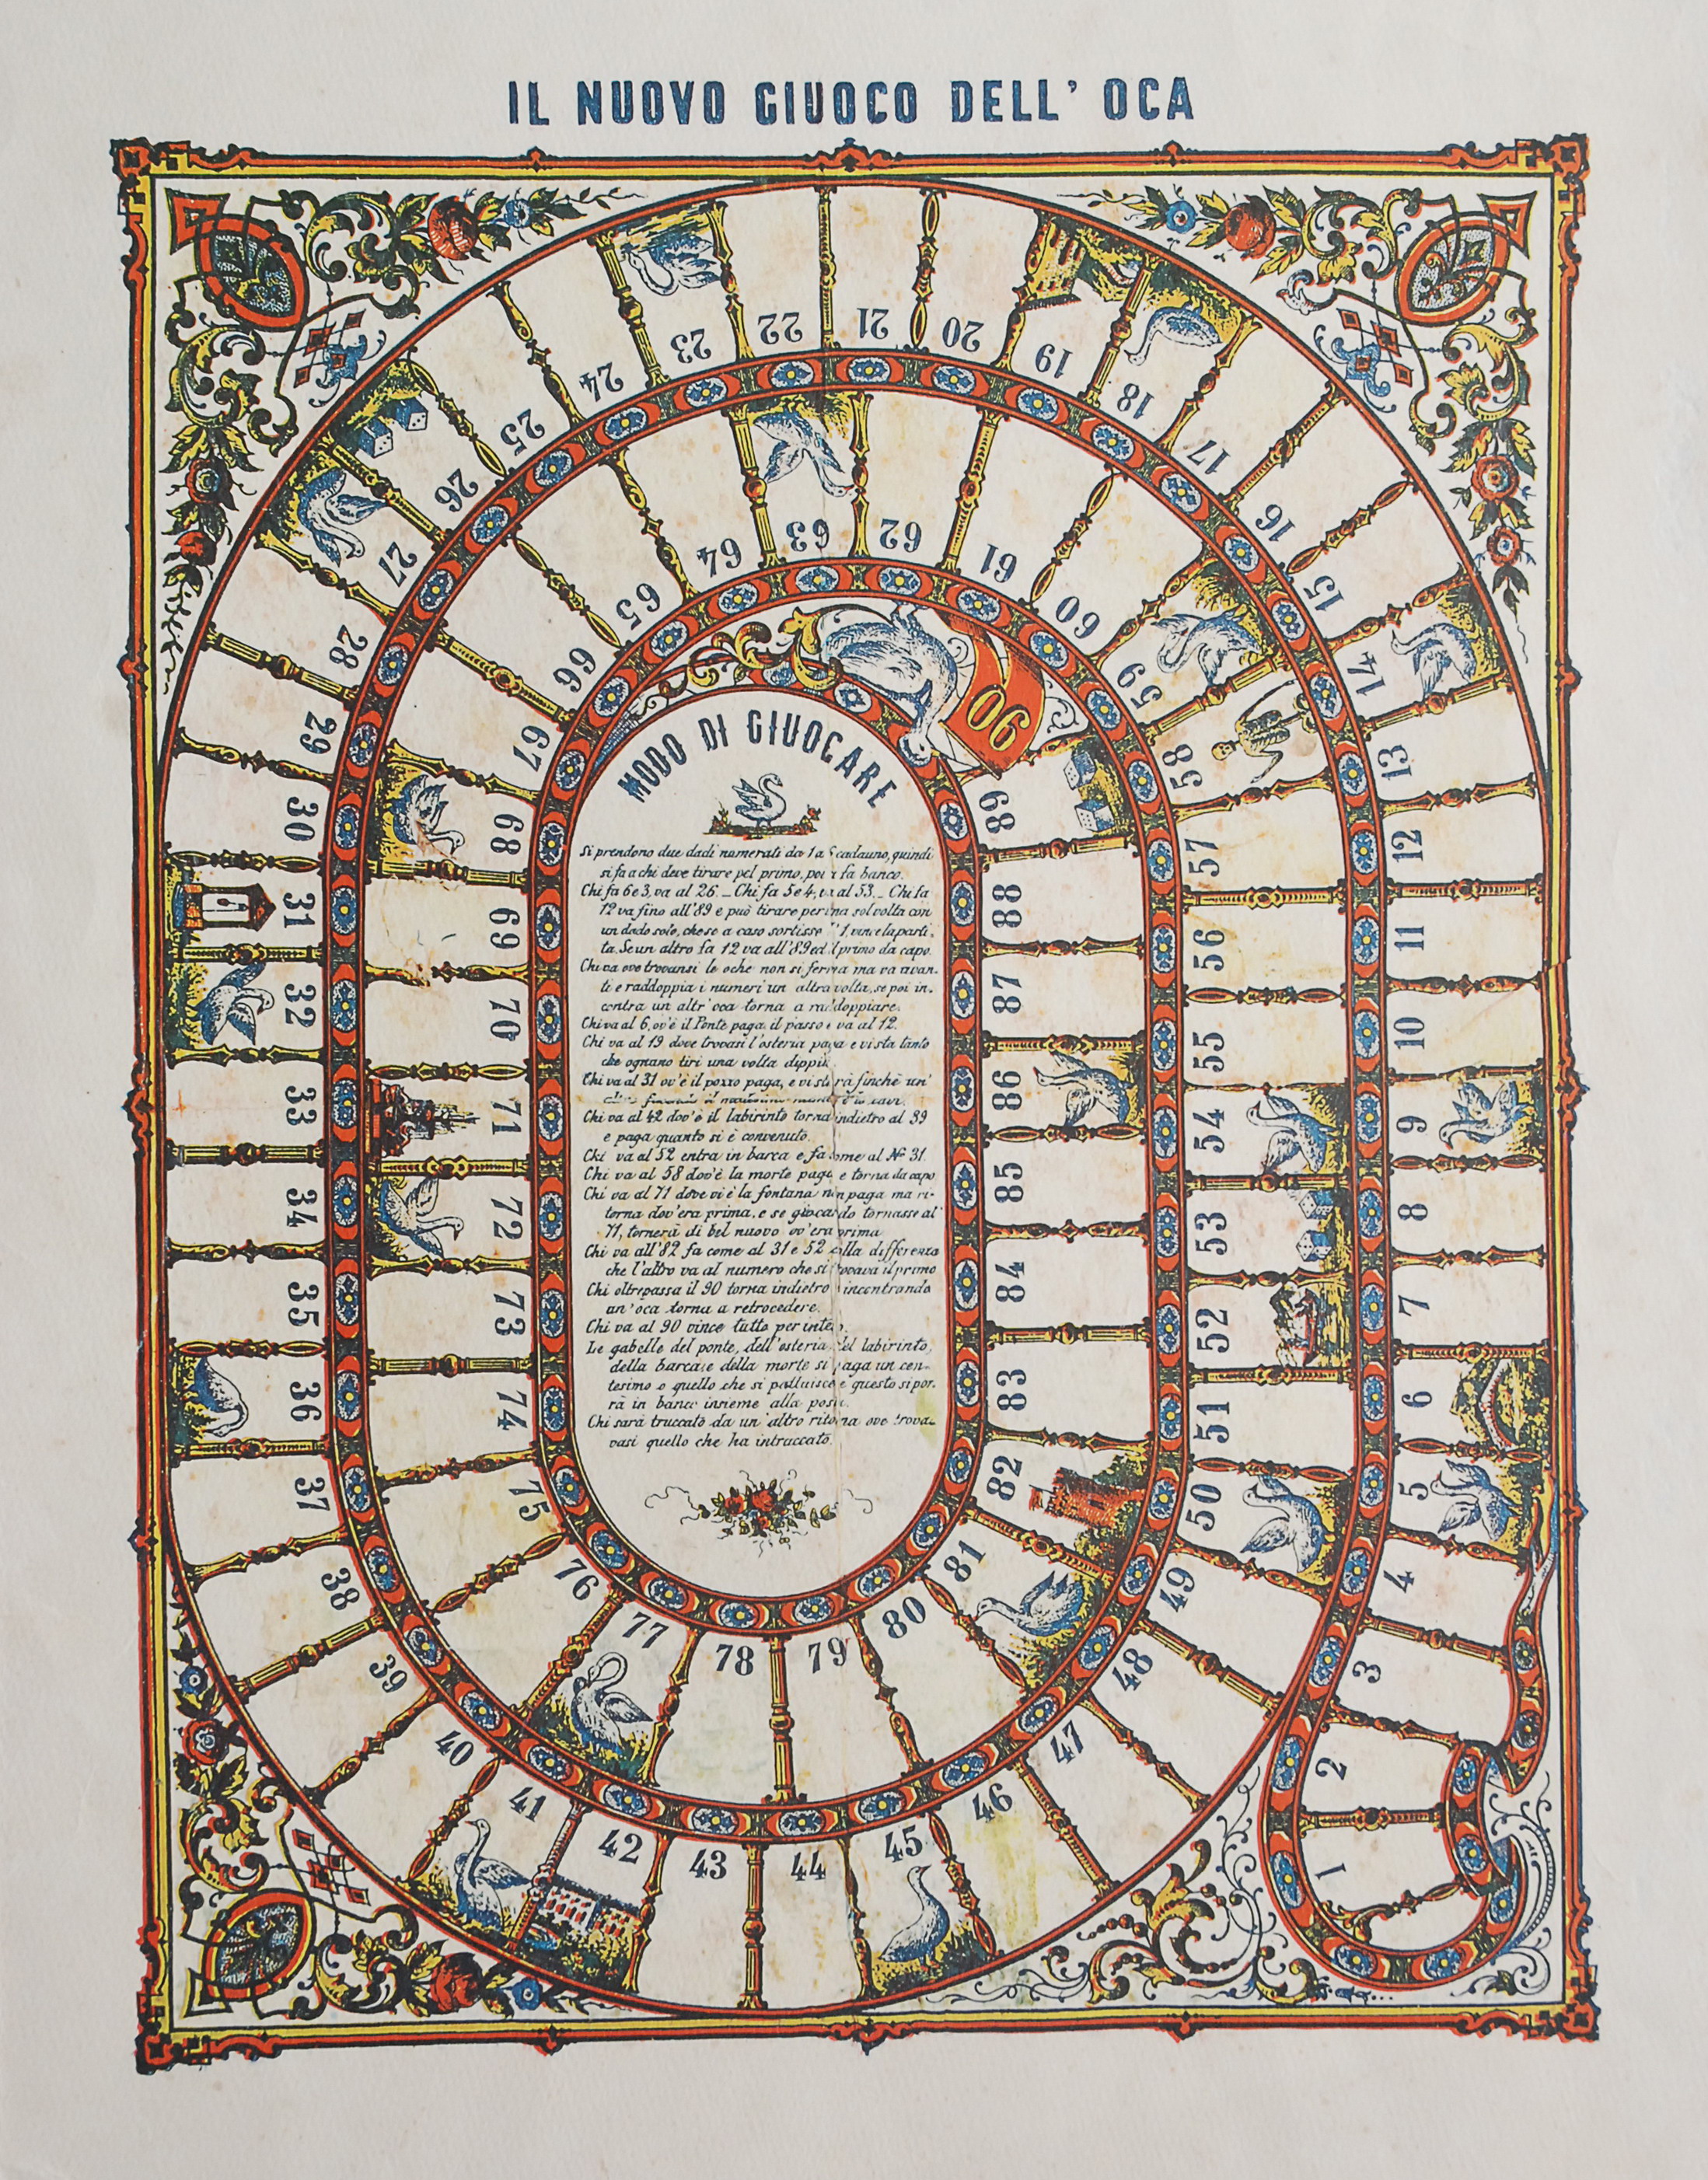 IL NUOVO GIUOCO DELL' OCA
MODO DI GIUOCARE
Si prendono due dadi numerati da 1 a 6 cadauno, quindi
si fa a chi deve tirare pel primo, poi si fa banco.
Chi fa 6 e 3, va al 26. _ Chi fa 5 e 4, va al 53. _ Chi fa
12 va fino all'89 e può tirare per una sol volta con
un dado solo, che se a caso sortisse l'1, vince la parti-
ta. Se un altro fa 12 va all'89 ed il primo da capo.
Chi va ove trovansi le oche non si ferma ma va avan-
ti e raddoppia i numeri un altra volta, se poi in-
contra un altr'oca torna a raddoppiare.
Chi va al 6, ov'è il Ponte paga il passo e va al 12.
Chi va al 19 dove trovasi l'osteria paga e vi sta tanto
che ognuno tiri una volta dippiù
Chi va al 31 ov'è il pozzo paga, e vi starà finchè un'
Chi va al 42 dov'è il labirinto torna indietro al 39
e paga quanto si è convenuto.
Chi va al 52 entra in barca e fa come al Nº 31
Chi va al 58 dov'è la morte paga e torna da capo
Chi va al 71 dove vi è la fontana non paga ma ri-
torna dov'era prima, e se giocando tornasse al
71, tornerà di bel nuovo ov'era prima
Chi va all'82 fa come al 31 e 52 colla differenza
che l'altro va al numero che si trovava il primo
Chi oltrepassa il 90 torna indietro incontrando
un'oca torna a retrocedere.
Chi va al 90 vince tutto per intero.
Le gabelle del ponte, dell'osteria del labirinto,
della barca e della morte si paga un cen-
tesimo o quello che si pattuisce e questo si por-
rà in banco insieme alla posta.
Chi sarà truccato da un altro ritorna ove trova-
vasi quello che ha intruccato.
1
2
3
4
5
6
7
8
9
10
11
12
13
14
15
16
17
18
19
20
21
22
23
24
25
26
27
28
29
30
31
32
33
34
35
36
37
38
39
40
41
42
43
44
45
46
47
48
49
50
51
52
53
54
55
56
57
58
59
60
61
62
63
64
65
66
67
68
69
70
71
72
73
74
75
76
77
78
79
80
81
82
83
84
85
86
87
88
89
90